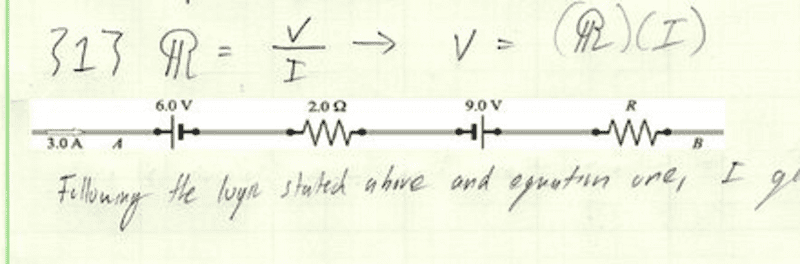 {1} ℝ = V/I → V = (ℝ)(I)
6.0 V 2.0 Ω 9.0 V R
3.0 A A B
Following the logic stated above and equation one, I g